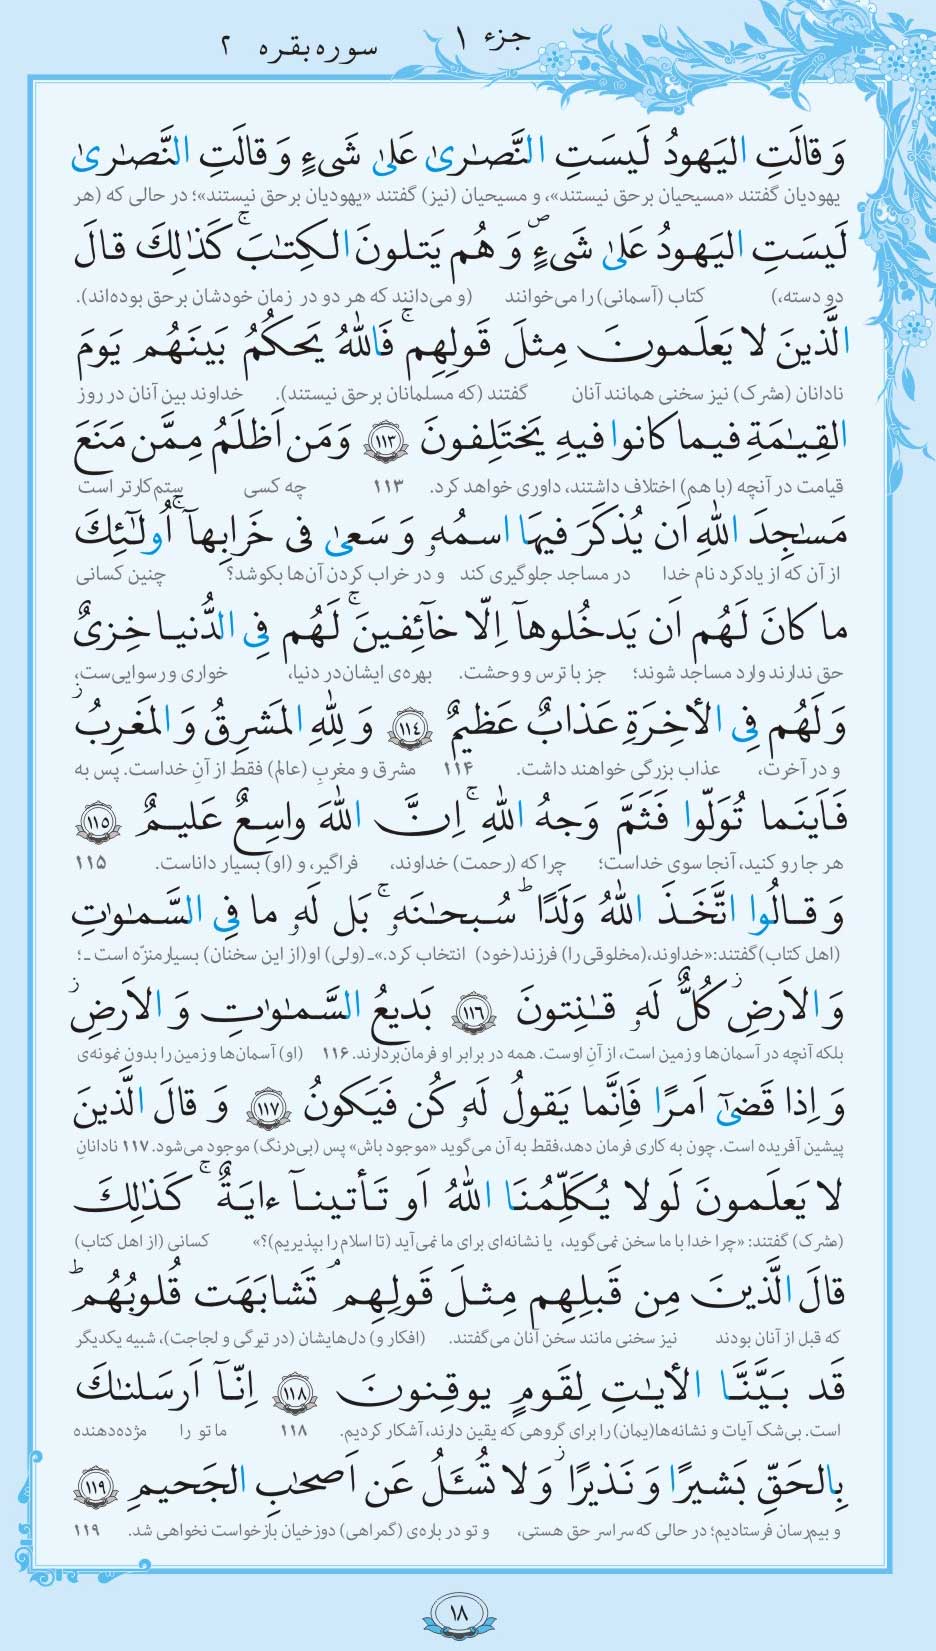 جزء ۱
سوره بقره ۲
وَ قالَتِ الیَهودُ لَیسَتِ النَّصٰریٰ عَلیٰ شَیءٍ وَ قالَتِ النَّصٰریٰ
یهودیان گفتند «مسیحیان برحق نیستند»، و مسیحیان (نیز) گفتند «یهودیان برحق نیستند»؛ در حالی که (هر
لَیسَتِ الیَهودُ عَلیٰ شَیءٍ ۙ وَ هُم یَتلونَ الکِتٰبَ ۚ کَذٰلِکَ قالَ
دو دسته،) کتاب (آسمانی) را می‌خوانند (و می‌دانند که هر دو در زمان خودشان برحق بوده‌اند).
الَّذینَ لا یَعلَمونَ مِثلَ قَولِهِم ۚ فَاللهُ یَحکُمُ بَینَهُم یَومَ
نادانان (مشرک) نیز سخنی همانند آنان گفتند (که مسلمانان برحق نیستند). خداوند بین آنان در روز
القِیٰمَةِ فیما کانوا فیهِ یَختَلِفونَ ﴿۱۱۳﴾ وَ مَن اَظلَمُ مِمَّن مَنَعَ
قیامت در آنچه (با هم) اختلاف داشتند، داوری خواهد کرد. ۱۱۳ چه کسی ستم‌کارتر است
مَسٰجِدَ اللهِ اَن یُذکَرَ فیهَا اسمُهٗ وَ سَعیٰ فی خَرابِها ۚ اُولٰئِکَ
از آن که از یادکرد نام خدا در مساجد جلوگیری کند و در خراب کردن آن‌ها بکوشد؟ چنین کسانی
ما کانَ لَهُم اَن یَدخُلوهآ اِلّا خآئِفینَ ۚ لَهُم فِی الدُّنیا خِزیٌ
حق ندارند وارد مساجد شوند؛ جز با ترس و وحشت. بهره‌ی ایشان در دنیا، خواری و رسوایی‌ست،
وَ لَهُم فِی الأخِرَةِ عَذابٌ عَظیمٌ ﴿۱۱۴﴾ وَ لِلّٰهِ المَشرِقُ وَ المَغرِبُ ۚ
و در آخرت، عذاب بزرگی خواهند داشت. ۱۱۴ مشرق و مغربِ (عالم) فقط از آنِ خداست. پس به
فَاَینَما تُوَلّوا فَثَمَّ وَجهُ اللهِ ۚ اِنَّ اللهَ واسِعٌ عَلیمٌ ﴿۱۱۵﴾
هر جا رو کنید، آنجا سوی خداست؛ چرا که (رحمت) خداوند، فراگیر، و (او) بسیار داناست. ۱۱۵
وَ قالُوا اتَّخَذَ اللهُ وَلَدًا ۗ سُبحٰنَهٗ ۚ بَل لَهٗ ما فِی السَّمٰوٰتِ
(اهل کتاب) گفتند: «خداوند، (مخلوقی را) فرزند(خود) انتخاب کرد.»ـ (ولی) او(از این سخنان) بسیار منزّه است ـ؛
وَ الاَرضِ ۚ کُلٌّ لَهٗ قٰنِتونَ ﴿۱۱۶﴾ بَدیعُ السَّمٰوٰتِ وَ الاَرضِ ۚ
بلکه آنچه در آسمان‌ها و زمین است، از آنِ اوست. همه در برابر او فرمان‌بردارند. ۱۱۶ (او) آسمان‌ها و زمین را بدون نمونه‌ی
وَ اِذا قَضیٰٓ اَمرًا فَاِنَّما یَقولُ لَهٗ کُن فَیَکونُ ﴿۱۱۷﴾ وَ قالَ الَّذینَ
پیشین آفریده است. چون به کاری فرمان دهد،فقط به آن می‌گوید «موجود باش» پس (بی‌درنگ) موجود می‌شود. ۱۱۷ نادانانِ
لا یَعلَمونَ لَولا یُکَلِّمُنَا اللهُ اَو تَأتینآ ءایَةٌ ۚ کَذٰلِکَ
(مشرک) گفتند: «چرا خدا با ما سخن نمی‌گوید، یا نشانه‌ای برای ما نمی‌آید (تا اسلام را بپذیریم)؟» کسانی (از اهل کتاب)
قالَ الَّذینَ مِن قَبلِهِم مِثلَ قَولِهِم ۘ تَشابَهَت قُلوبُهُم ۗ
که قبل از آنان بودند نیز سخنی مانند سخن آنان می‌گفتند. (افکار و) دل‌هایشان (در تیرگی و لجاجت)، شبیه یکدیگر
قَد بَیَّنَّا الأیٰتِ لِقَومٍ یوقِنونَ ﴿۱۱۸﴾ اِنّآ اَرسَلنٰکَ
است. بی‌شک آیات و نشانه‌ها(یمان) را برای گروهی که یقین دارند، آشکار کردیم. ۱۱۸ ما تو را مژده‌دهنده
بِالحَقِّ بَشیرًا وَ نَذیرًا ۚ وَ لا تُسئَلُ عَن اَصحٰبِ الجَحیمِ ﴿۱۱۹﴾
و بیم‌رسان فرستادیم؛ در حالی که سراسر حق هستی، و تو در باره‌ی (گمراهی) دوزخیان بازخواست نخواهی شد. ۱۱۹
۱۸